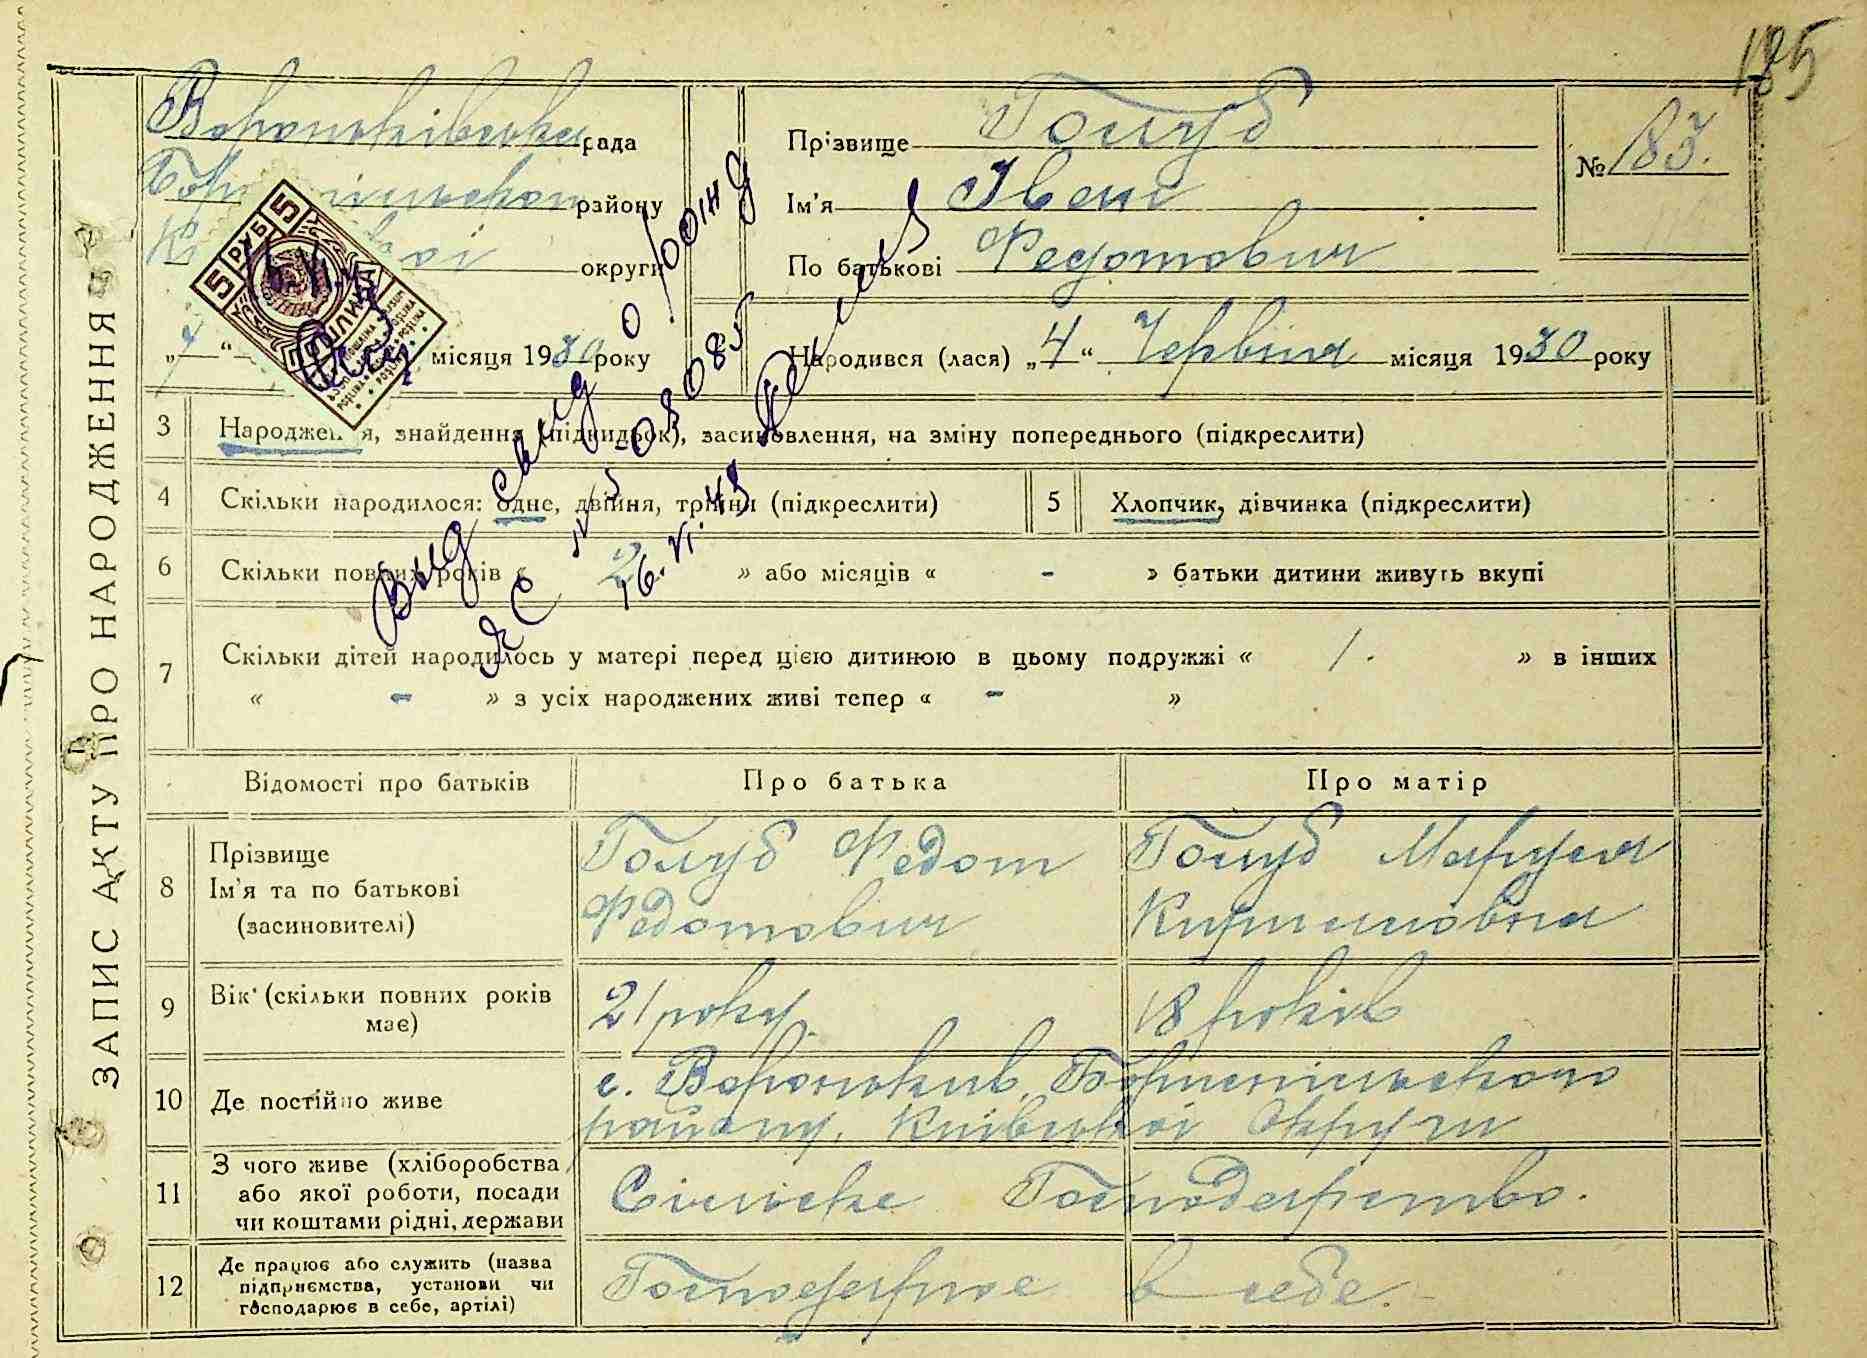 185
Вороньківська рада
району
округи
„ “ місяця 1930 року
5 РУБ 5
16.VI.48
Прізвище Голуб
Ім'я Іван
По батькові Федотович
№ 183.
Народився (лася) „4“ Червня місяця 1930 року
ЗАПИС АКТУ ПРО НАРОДЖЕННЯ
3 Народження, знайдення (підкидьок), засиновлення, на зміну попереднього (підкреслити)
4 Скільки народилося: одне, двійня, трійня (підкреслити)
5 Хлопчик, дівчинка (підкреслити)
6 Скільки повних років « 2 » або місяців « - » батьки дитини живуть вкупі
7 Скільки дітей народилось у матері перед цією дитиною в цьому подружжі « 1. » в інших
« - » з усіх народжених живі тепер « - »
Выд свид о рожд
ЯС №
16.VI.48
Відомості про батьків
Про батька
Про матір
8 Прізвище
Ім'я та по батькові
(засиновителі)
Голуб Федот
Федотович
Голуб Маруся
Кириловна
9 Вік (скільки повних років
має)
21 року.
18 років
10 Де постійно живе
с. Вороньків, Бориспільського
району. Київської Округи
11 З чого живе (хліборобства
або якої роботи, посади
чи коштами рідні, держави
Сільське Господарство.
12 Де працює або служить (назва
підприємства, установи чи
господарює в себе, артілі)
Господарює в себе.